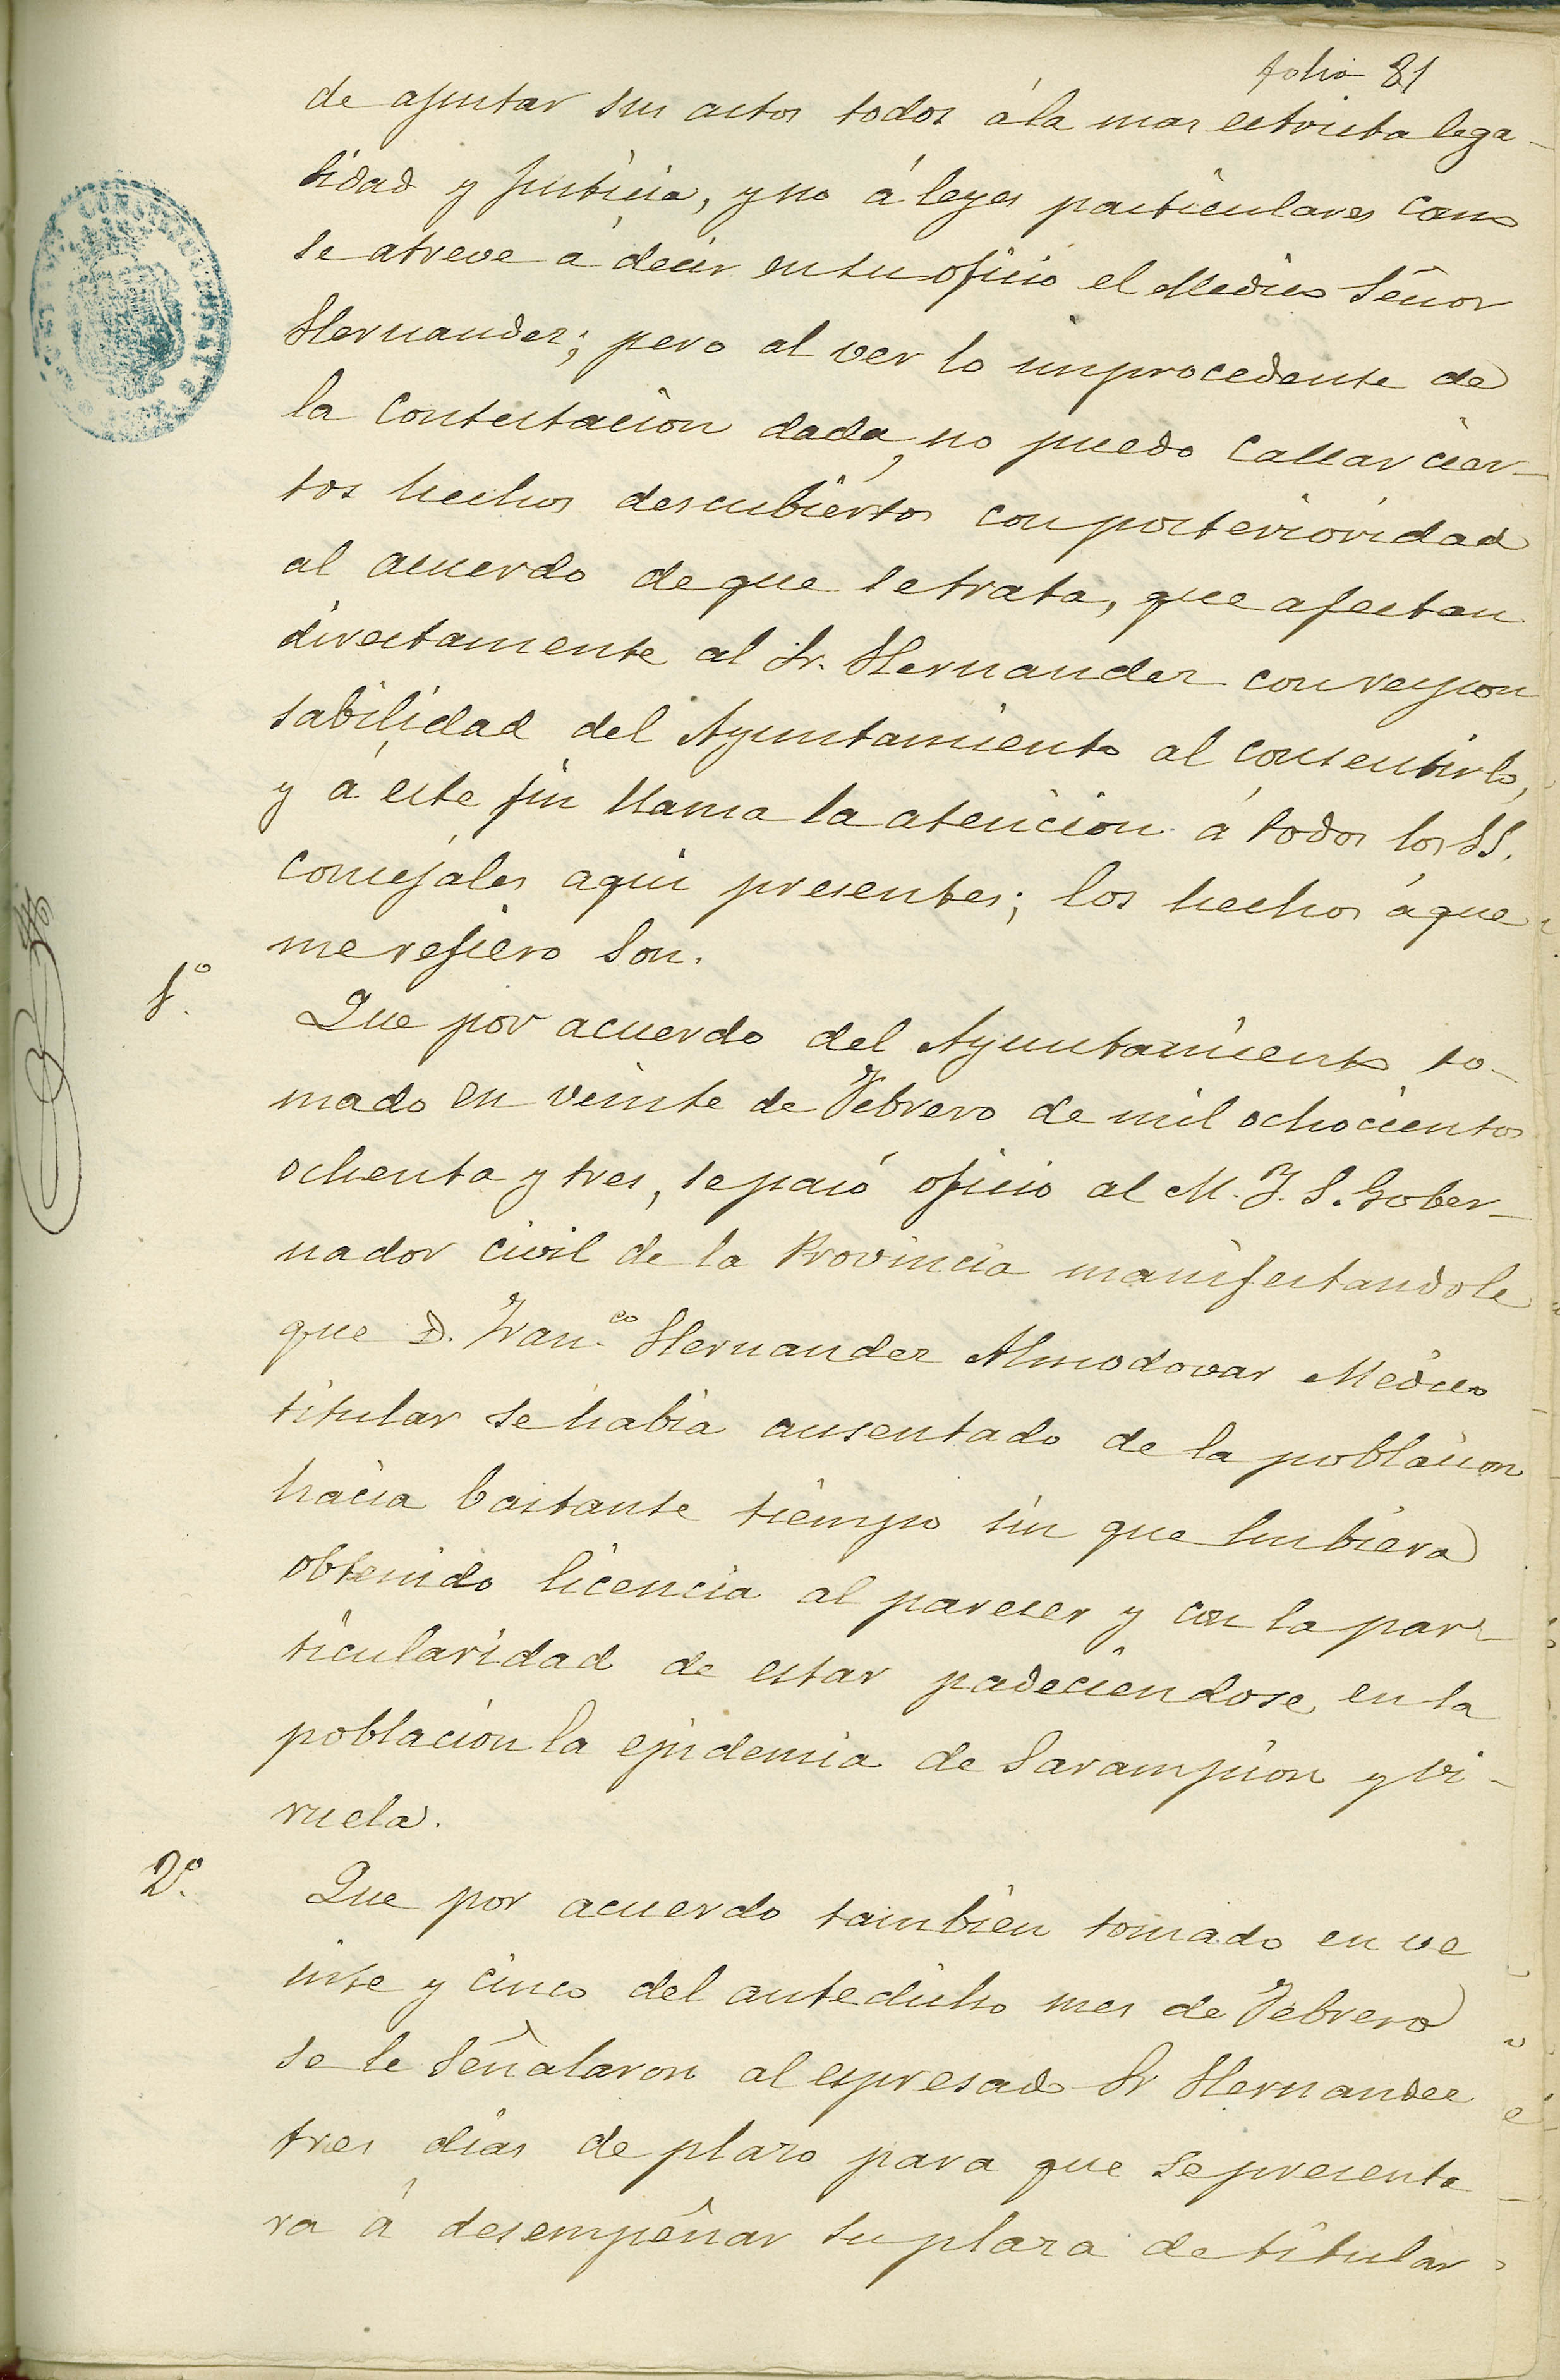 folio 81
de ajustar sus actos todos á la mas estricta lega-
lidad y justicia, y no á leyes particulares como
se atreve á decir en su oficio el Medico Señor
Hernandez; pero al ver lo improcedente de
la contestacion dada, no puedo callar cier-
tos hechos descubiertos con posterioridad
al acuerdo de que se trata, que afectan
directamente al Sr. Hernandez con respon
sabilidad del Ayuntamiento al consentirlo,
y á este fin llama la atencion á todos los SS.
concejales aqui presentes; los hechos á que
me refiero son.
1.º Que por acuerdo del Ayuntamiento to-
mado en veinte de Febrero de mil ochocientos
ochenta y tres, se pasó oficio al M. I. S. Gober-
nador civil de la Provincia manifestandole
que D. Fran.co Hernandez Almodovar Médico
titular se habia ausentado de la poblacion
hacia bastante tiempo sin que hubiera
obtenido licencia al parecer y con la par-
ticularidad de estar padeciendose en la
poblacion la epidemia de Sarampion y vi-
ruela.
2.º Que por acuerdo tambien tomado en ve
inte y cinco del antedicho mes de Febrero
se le señalaron al espresado Sr Hernandez
tres dias de plazo para que se presenta
ra á desempeñar su plaza de titular